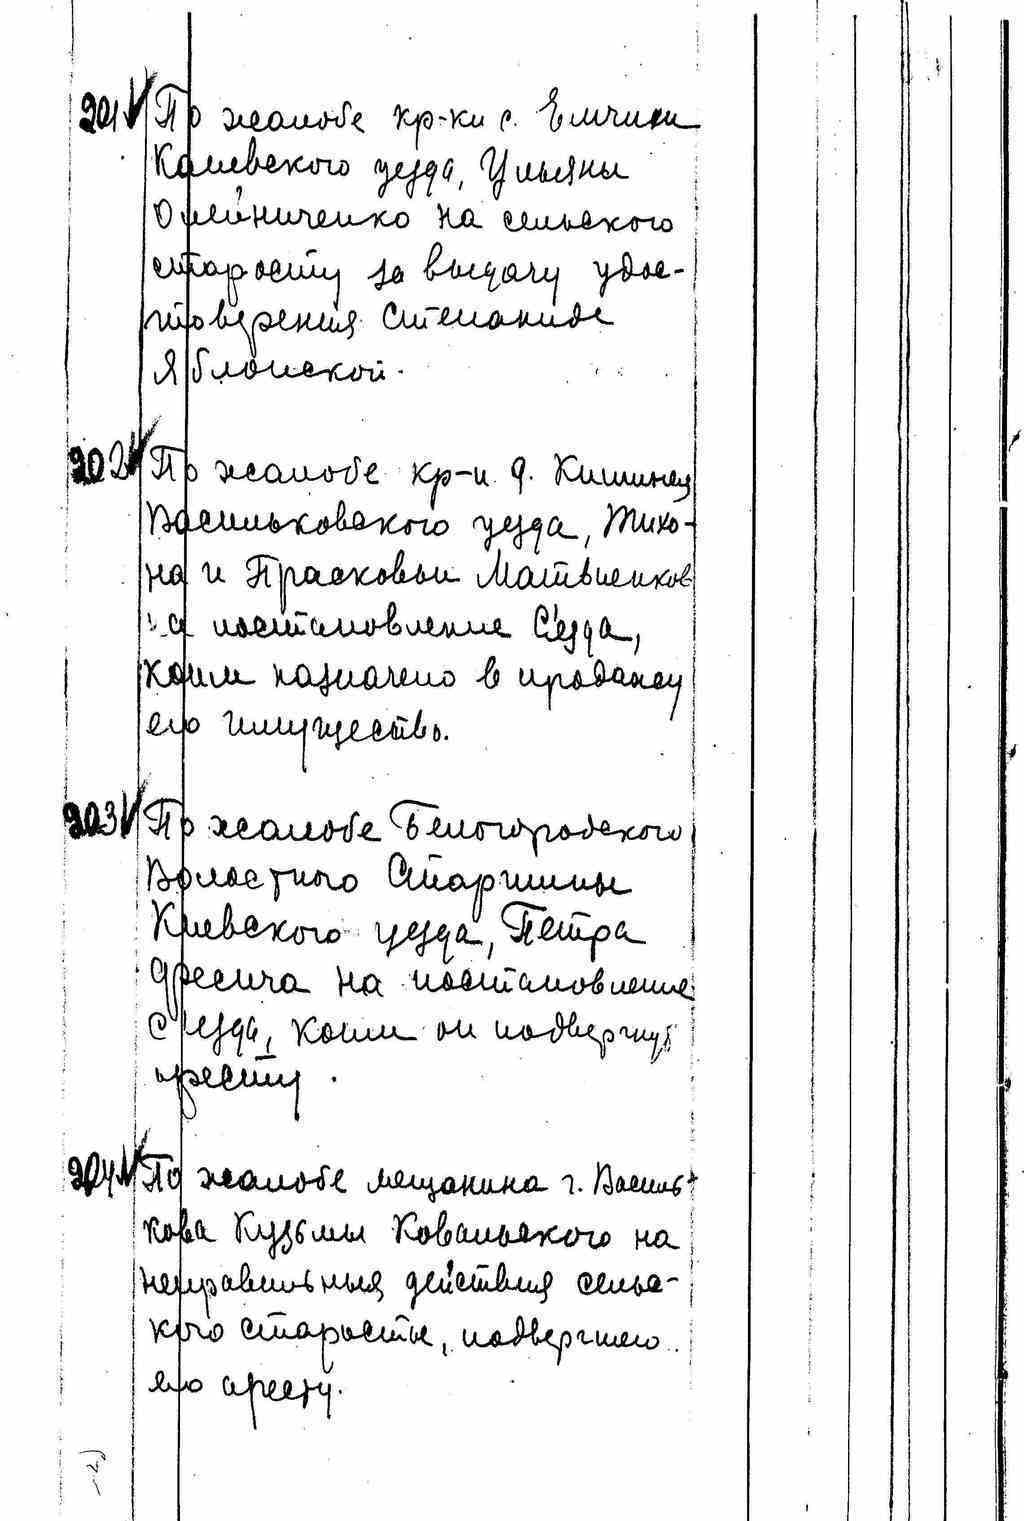 201 По жалобе кр-ки с. Емчихи
Каневского уезда, Ульяны
Олейниченко на сельского
старосту за выдачу удос-
товерения Степаниде
Яблонской.
202 По жалобе кр-н д. Кишинец
Васильковского уезда, Тихо-
на и Прасковьи Матвиенков
на постановление С'езда,
коим назначено в продажу
его имущество.
203 По жалобе Белогородского
Волостного Старшины
Киевского уезда, Петра
на постановление
С'езда, коим он подвергнут
аресту.
204 По жалобе мещанина г. Василь-
кова Кузьмы Ковальского на
неправильныя действия сельс-
кого старосты, подвергшего
его аресту.